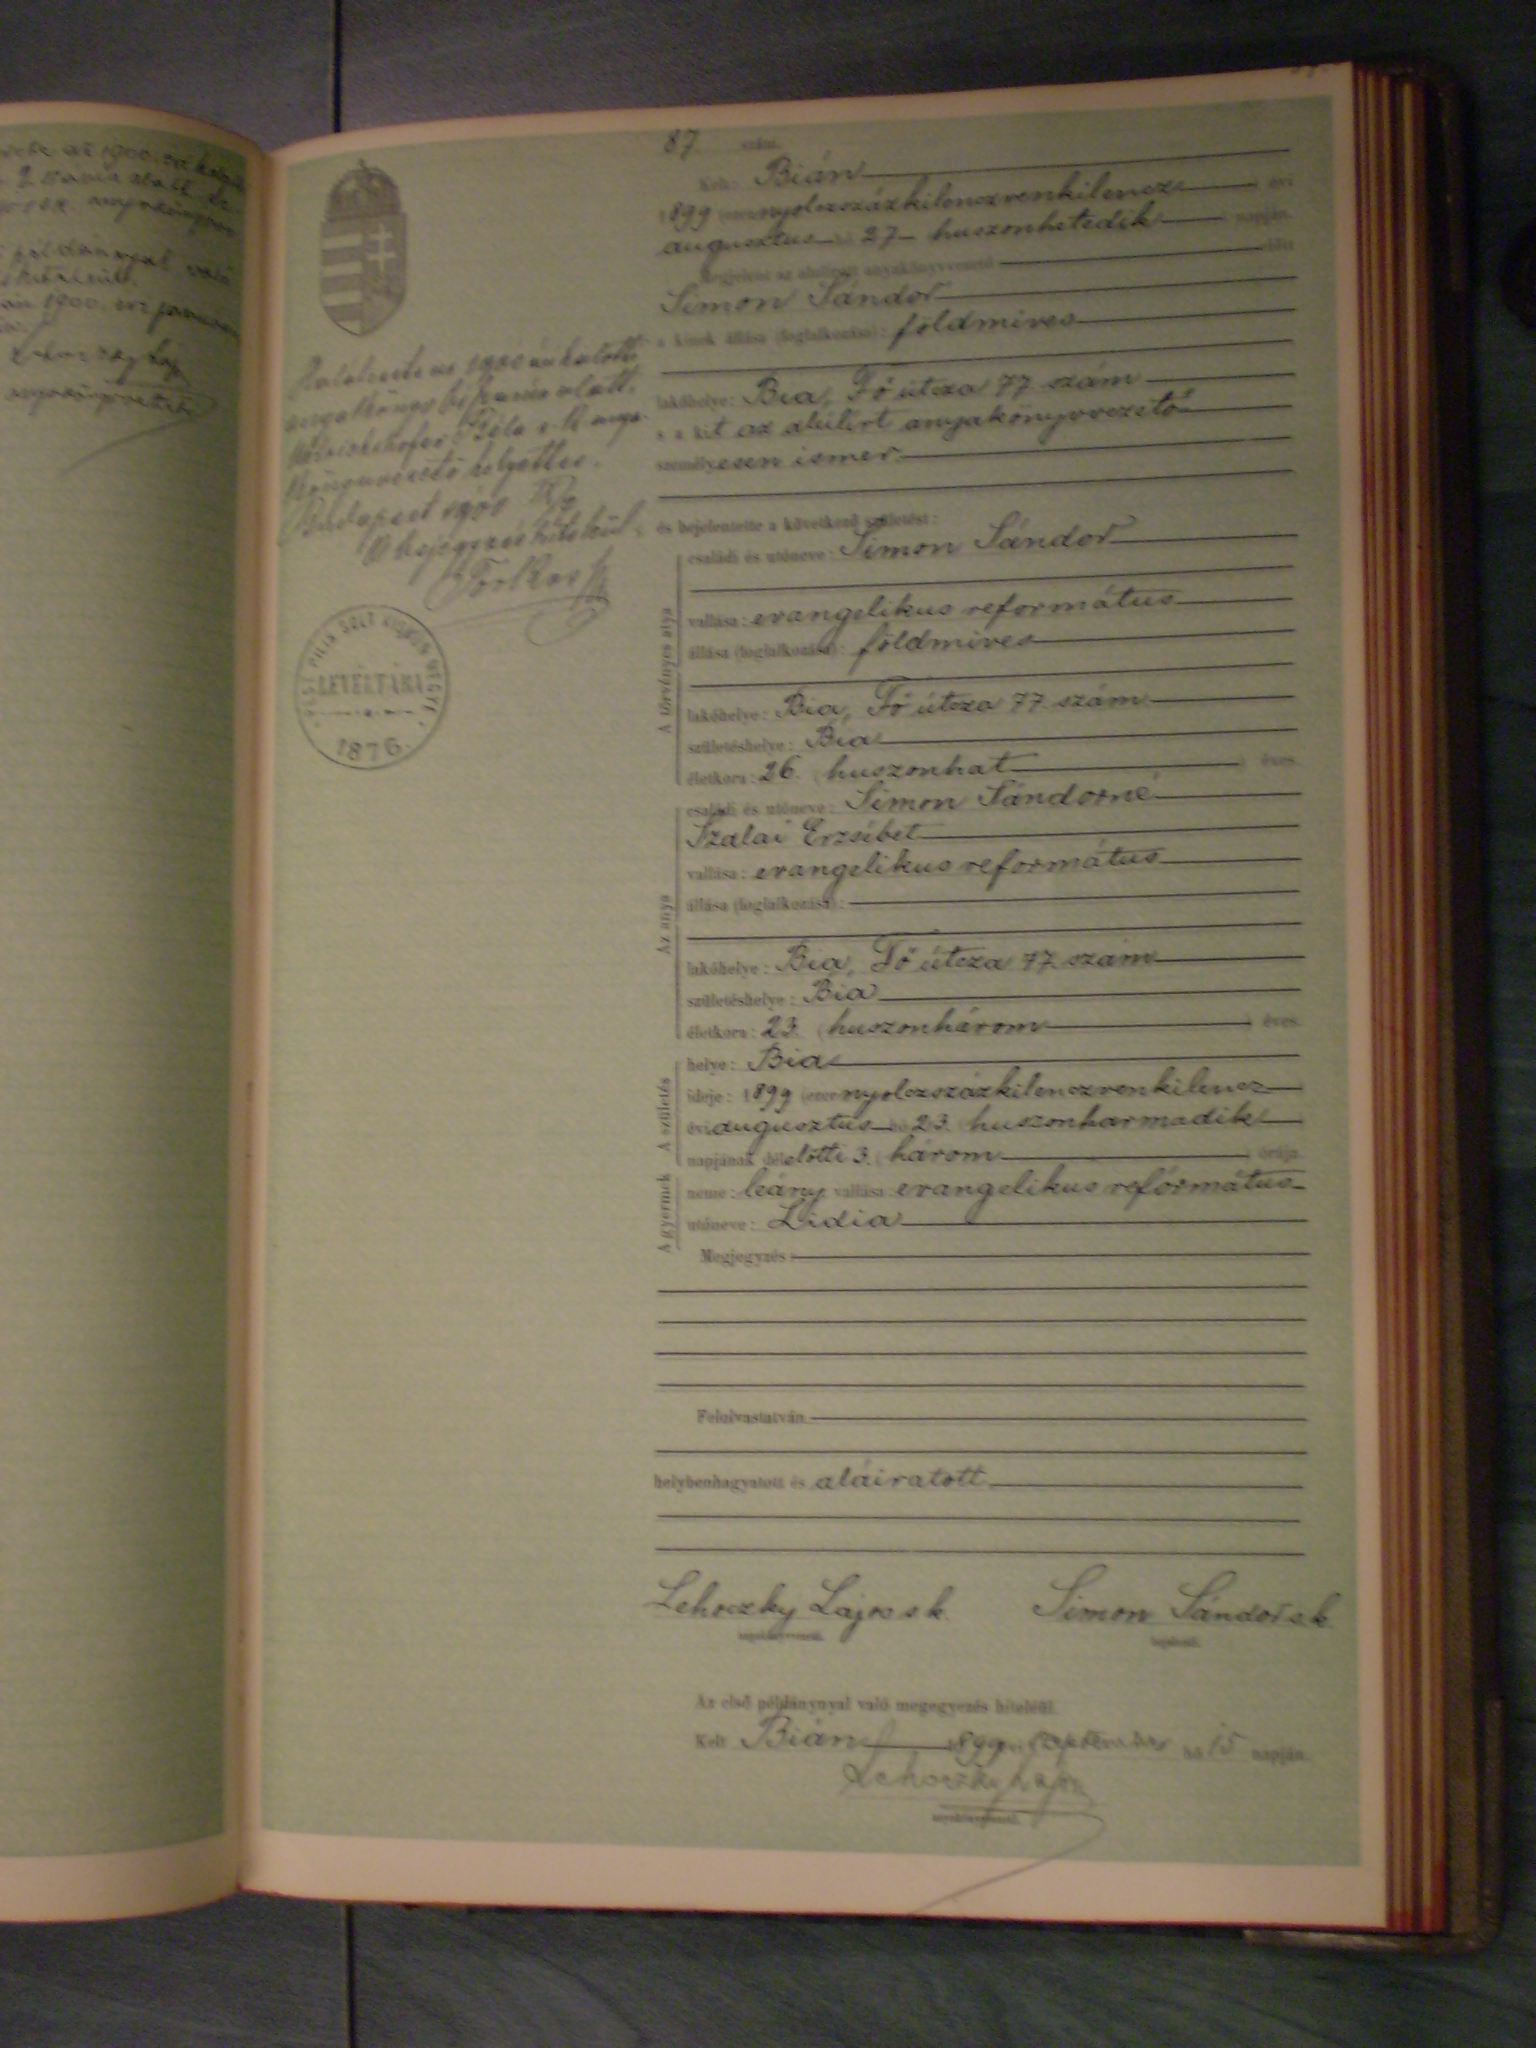 87 szám.
Kelt: Bián
1899 (ezernyolczszázkilenczvenkilencz) évi
augusztus hó 27 huszonhetedik napján.
Megjelent az alulirott anyakönyvvezető előtt
Simon Sándor
a kinek állása (foglalkozása): földmives
lakóhelye: Bia, Fő útcza 77 szám
s a kit az alulirt anyakönyvvezető
személyesen ismer.
és bejelentette a következő születést:
A törvényes atya
családi és utóneve: Simon Sándor
vallása: evangelikus református
állása (foglalkozása): földmives
lakóhelye: Bia, Fő útcza 77 szám
születéshelye: Bia
életkora: 26. (huszonhat) éves.
Az anya
családi és utóneve: Simon Sándorné
Szalai Erzsébet
vallása: evangelikus református
állása (foglalkozása):
lakóhelye: Bia, Fő útcza 77 szám
születéshelye: Bia
életkora: 23. (huszonhárom) éves.
A születés
helye: Bia
ideje: 1899 (ezernyolczszázkilenczvenkilencz)
évi augusztus hó 23. (huszonharmadik)
napjának délelőtti 3. (három) órája.
A gyermek
neme: leány, vallása: evangelikus református
utóneve: Lidia
Megjegyzés:
Felolvastatván,
helybenhagyatott és aláiratott
Lehoczky Lajos sk. Simon Sándor sk.
anyakönyvvezető. bejelentő.
Az első példánynyal való megegyezés hiteléül.
Kelt Bián 1899 évi szeptember hó 15 napján.
Lehoczky Lajos
anyakönyvvezető.
Halálesete az 1900 évi halotti
anyakönyv szám alatt.
Béla s. k. anya-
könyvvezető helyettes.
Budapest 1900
A bejegyzés hiteléül:
PEST PILIS SOLT KISKUN MEGYE
LEVÉLTÁRA
1876.
az 1900.
szám alatt
anyakönyvvezető
példánnyal való
1900. évi január
Lehoczky Lajos
anyakönyvvezető